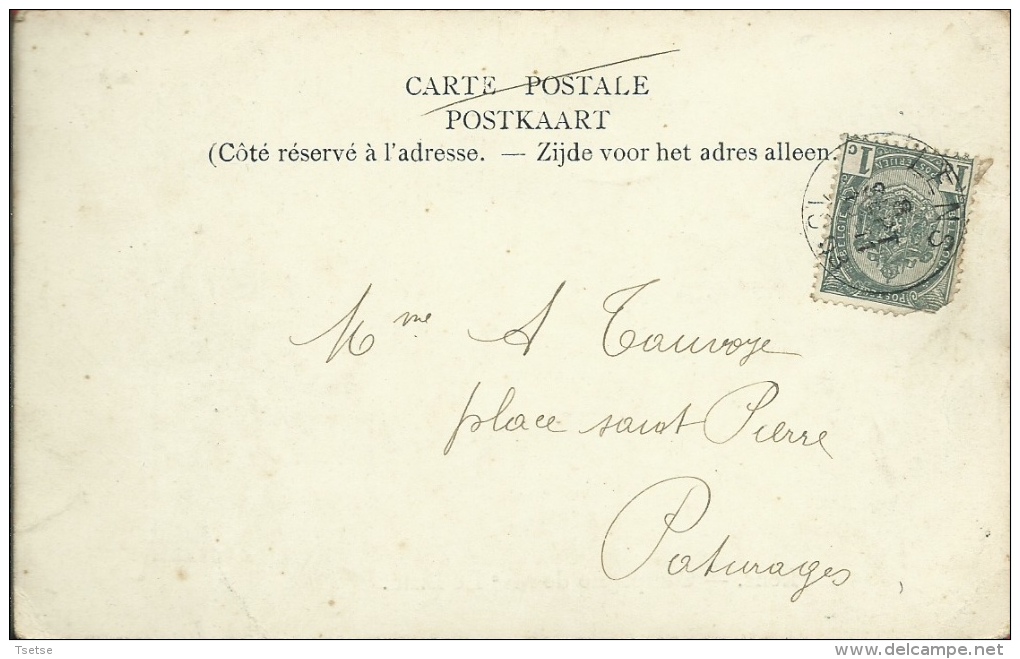 CARTE POSTALE
POSTKAART
(Côté réservé à l'adresse. — Zijde voor het adres alleen.
LENS
1 1
Mme A Tauvoye
place saint Pierre
Paturages
Tsetse
delcampe.net